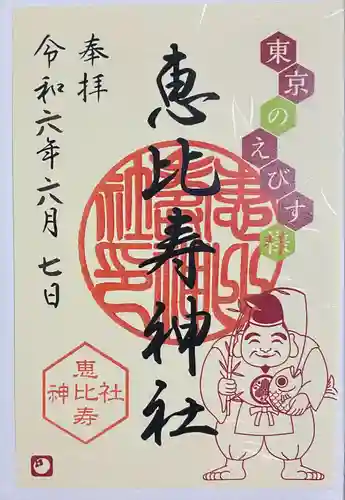 東京のえびす様
奉拝
恵比寿神社
令和六年六月七日
恵
神比社
寿